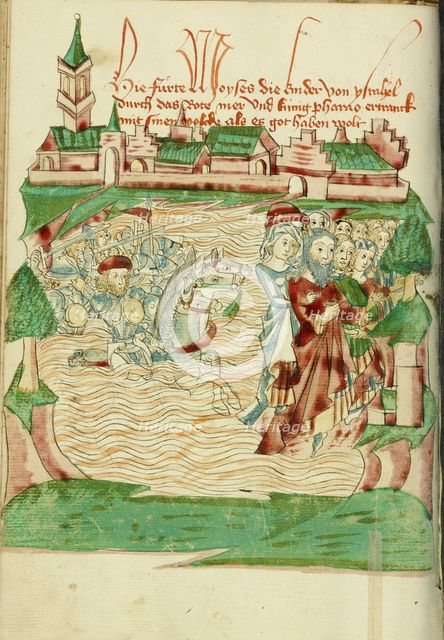 Hie fürte Moyses die kinder von ysrahel
durch das Rote mer Vnd künig pharao ertranck
mit sinem volcke als es got haben wolt
Heritage
Heritage
Heritage
Heritage
Heritage
Heritage
Heritage
Heritage